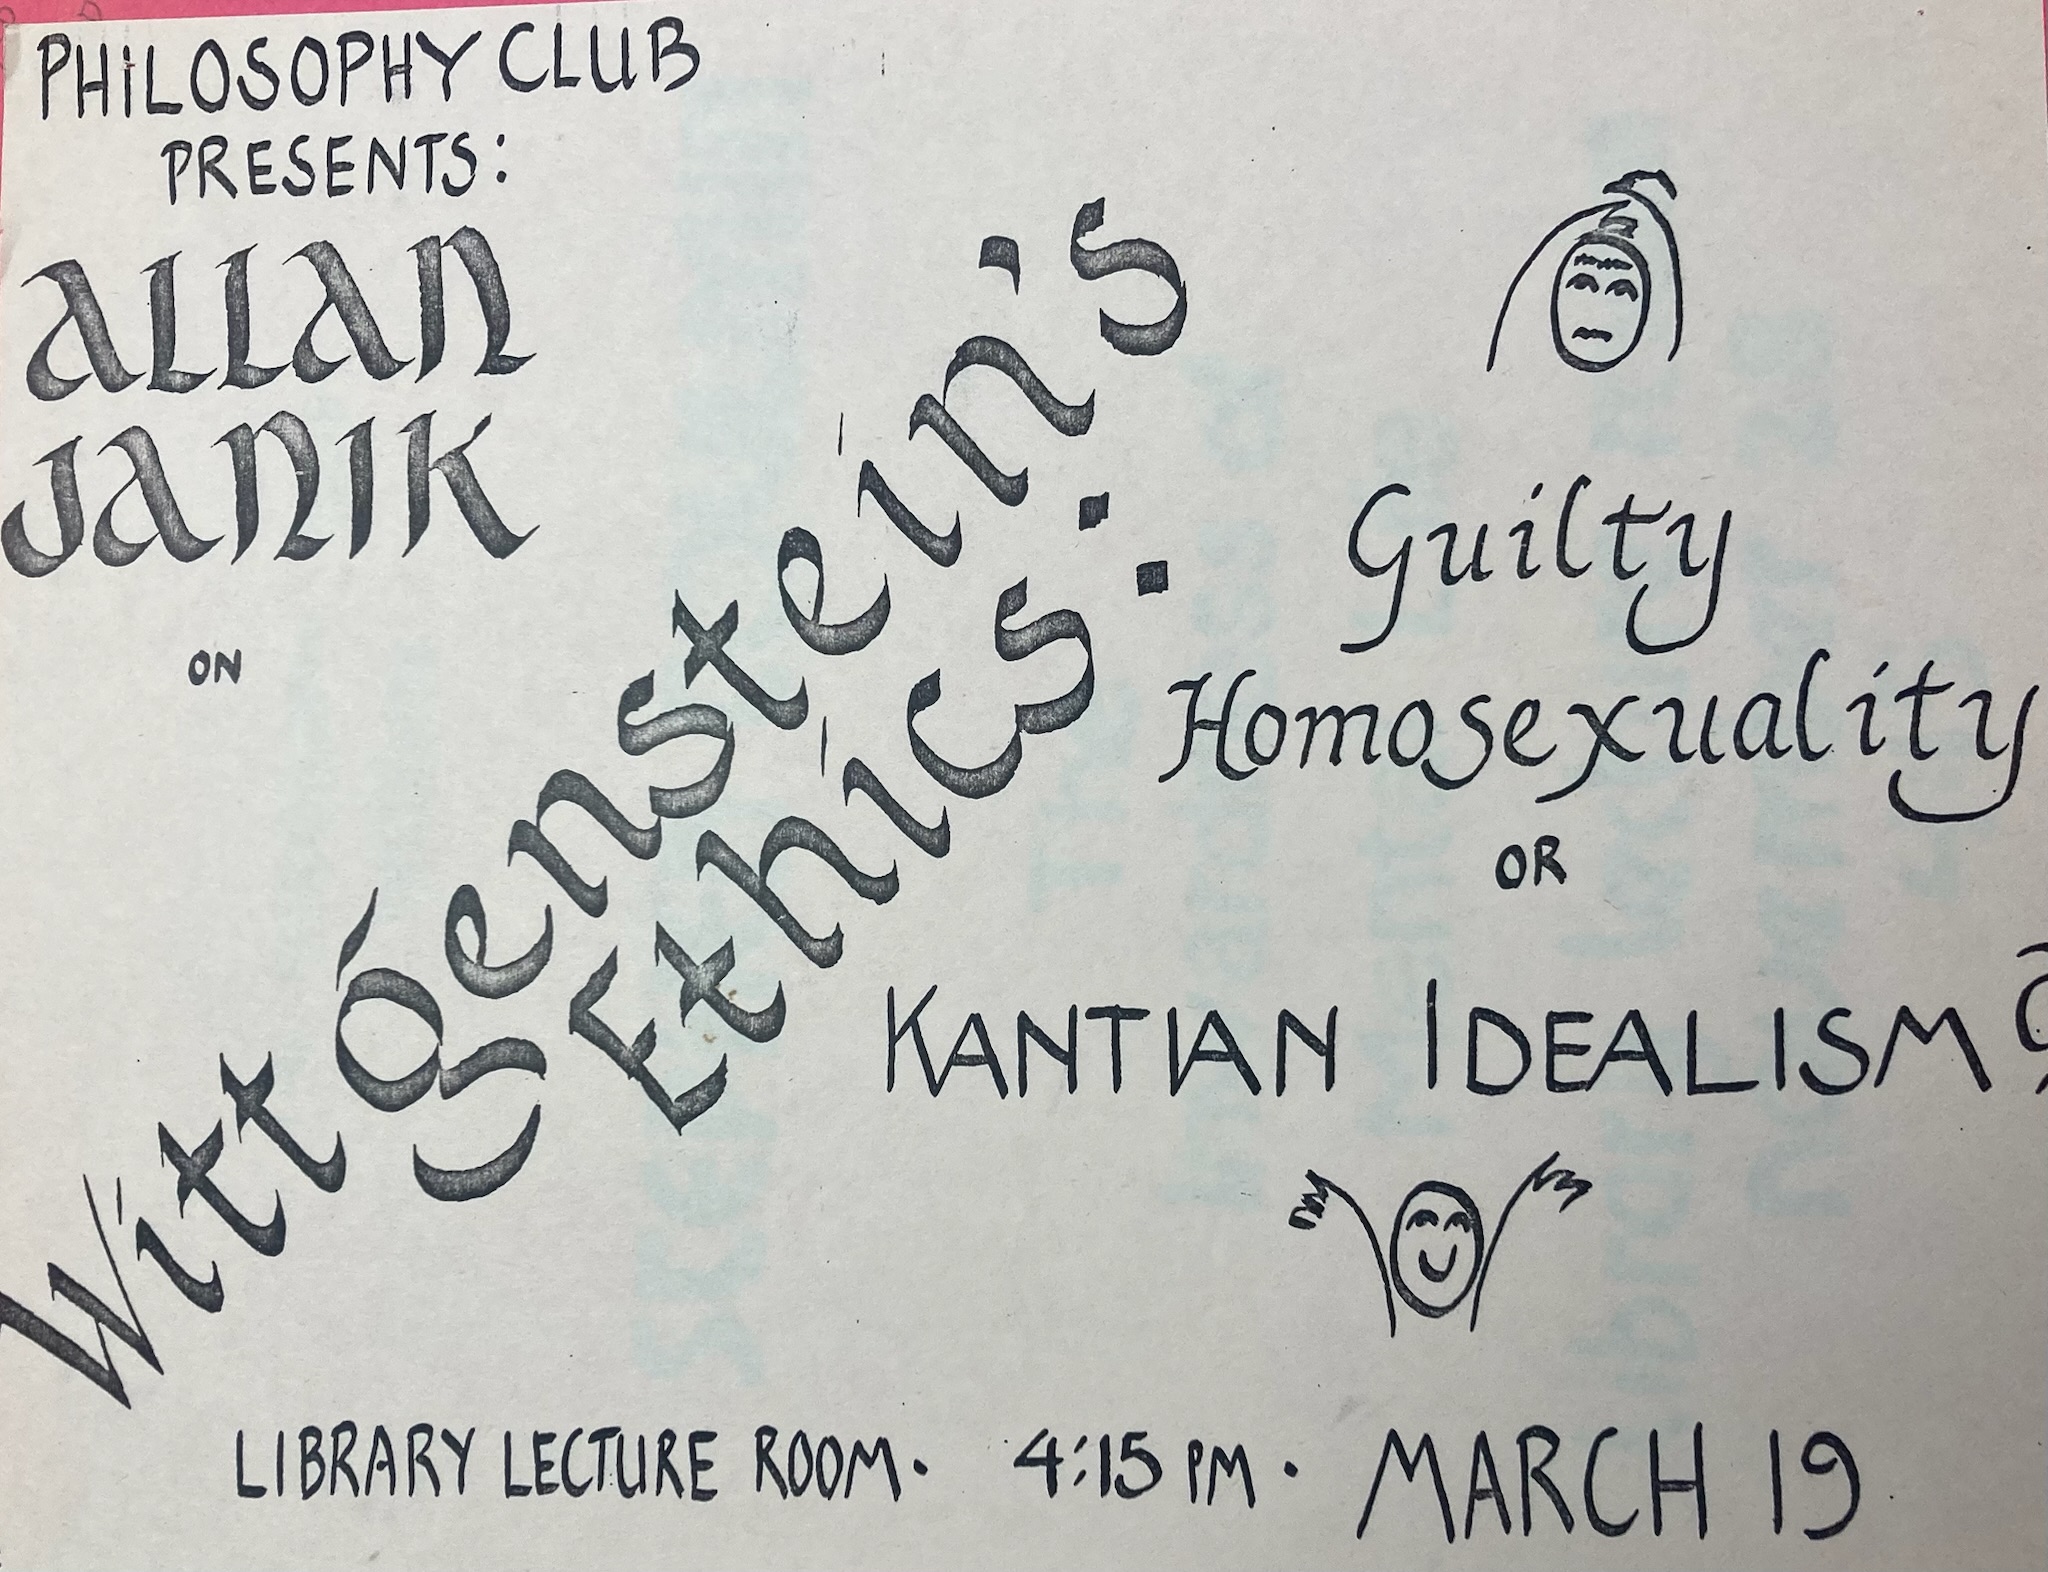 PHiLOSOPHY CLUB
PRESENTS:
ALLAN
JANIK
ON
Wittgenstein's
Ethics:
Guilty
Homosexuality
OR
KANTIAN IDEALISM?
LIBRARY LECTURE ROOM. 4:15 PM. MARCH 19